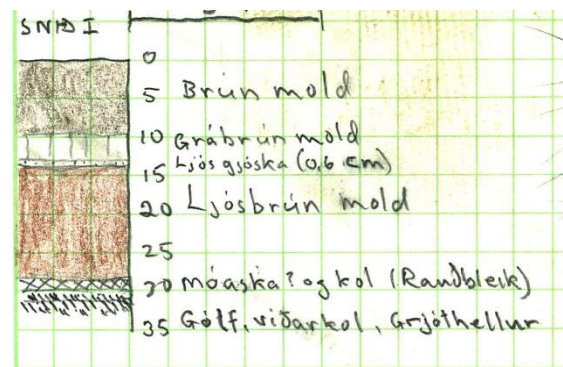 SNIÐ I
0
5 Brún mold
10 Grábrún mold
Ljós gjóska (0,6 cm)
15
20 Ljósbrún mold
25
30 Móaska? og kol (Rauðbleik)
35 Gólf, viðarkol, Grjóthellur